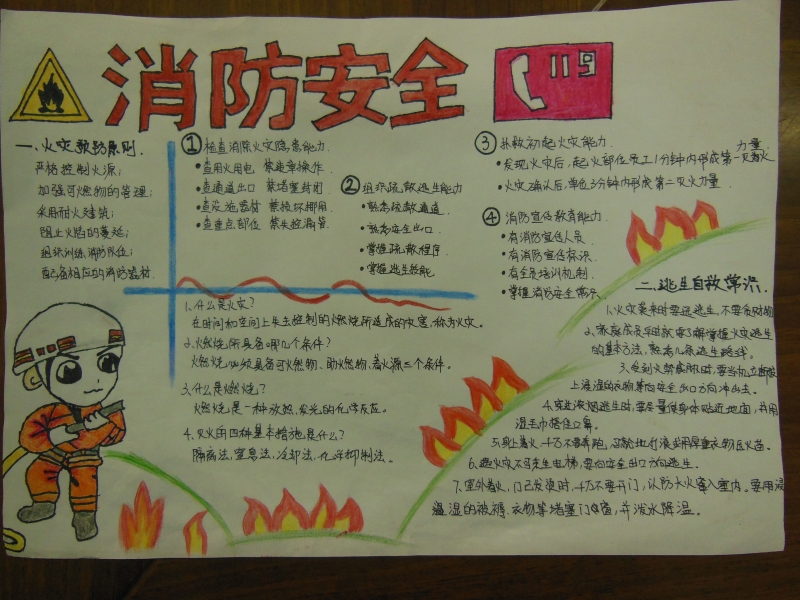 消防安全
119
一、火灾预防原则.
严格控制火源;
加强可燃物的管理;
采用耐火建筑;
阻止火焰的蔓延;
组织训练消防队伍;
配备相应的消防器材.
①检查消除火灾隐患能力.
•查用火用电 禁违章操作.
•查通道出口 禁堵塞封闭
•查设施器材 禁损坏挪用.
•查重点部位 禁失控漏管.
②组织疏散逃生能力
•熟悉疏散通道.
•熟悉安全出口.
•掌握疏散程序.
•掌握逃生技能
③扑救初起火灾能力.
力量.
•发现火灾后,起火部位员工1分钟内形成第一灭火
•火灾确认后,单位3分钟内形成第二灭火力量.
④消防宣传教育能力.
•有消防宣传人员.
•有消防宣传标识.
•有全员培训机制.
•掌握消防安全常识.
1.什么是火灾?
在时间和空间上失去控制的燃烧所造成的灾害,称为火灾。
2.燃烧所具备哪几个条件?
燃烧必须具备可燃物、助燃物、着火源三个条件。
3.什么是燃烧?
燃烧是一种放热、发光的化学反应。
4.灭火的四种基本措施是什么?
隔离法、窒息法、冷却法、化学抑制法。
二、逃生自救常识.
1.火灾袭来时要迅速逃生,不要贪财物
2.家庭成员平时就要了解掌握火灾逃生
的基本方法,熟悉几条逃生路线.
3.受到火势威胁时,要当机立断披
上浸湿的衣物等向安全出口方向冲出去。
4.穿过浓烟逃生时,要尽量使身体贴近地面,并用
湿毛巾捂住口鼻.
5.身上着火,千万不要奔跑,可就地打滚或用厚重衣物压火苗。
6.遇火灾不可乘坐电梯,要向安全出口方向逃生.
7.室外着火,门已发烫时,千万不要开门,以防大火窜入室内.要用浸
湿的被褥、衣物等堵塞门窗,并泼水降温。